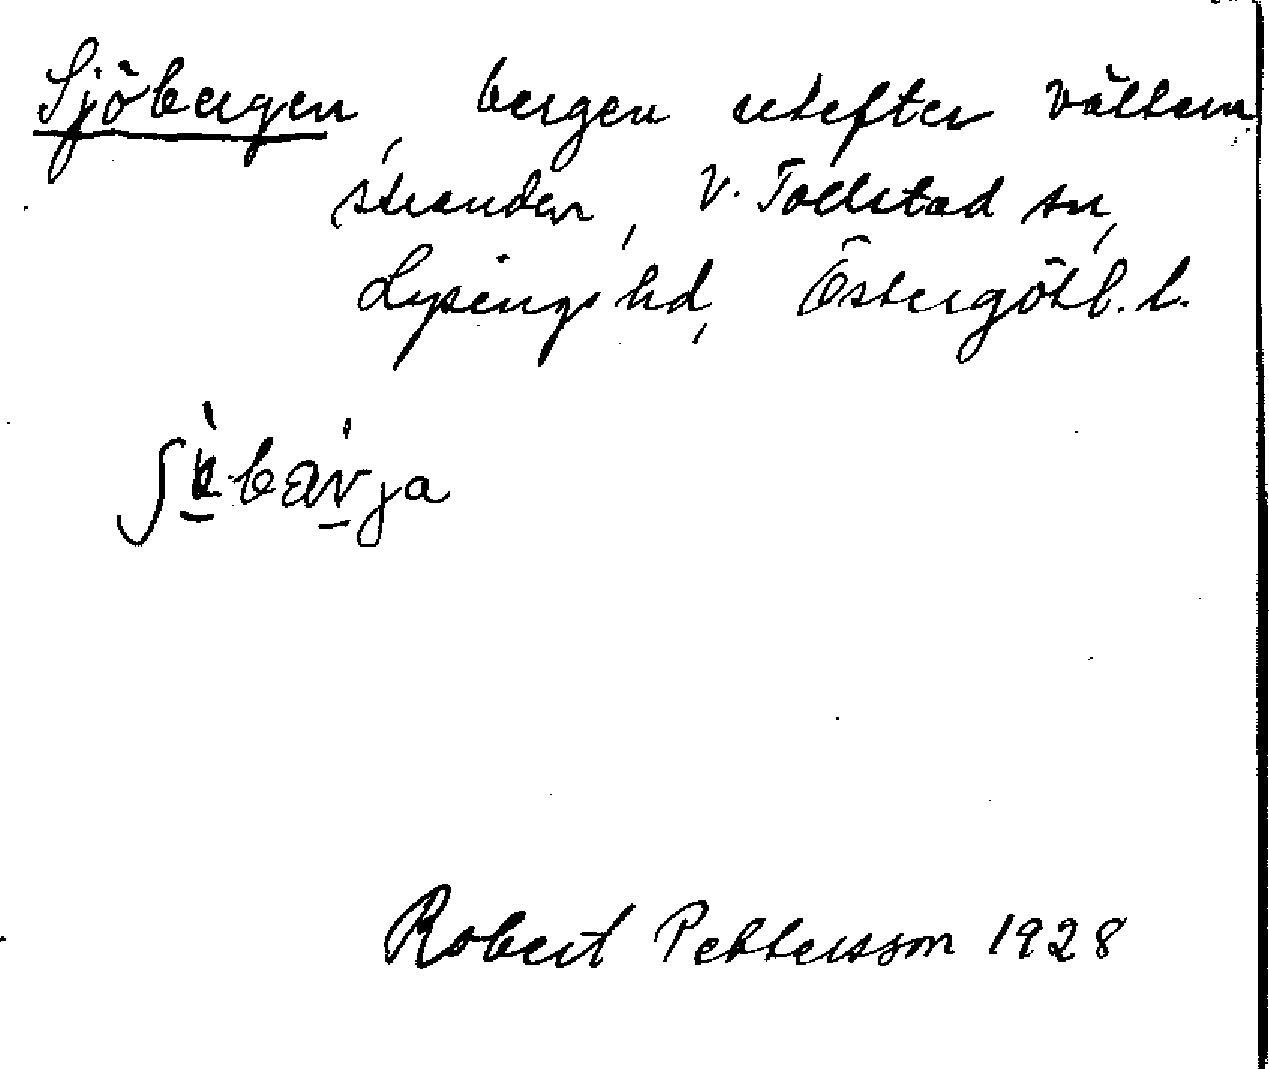 Sjöbergen, bergen utefter Vättern
stranden, V. Tollstad sn,
Lysings hd, Östergötl. l.
Robert Pettersson 1928